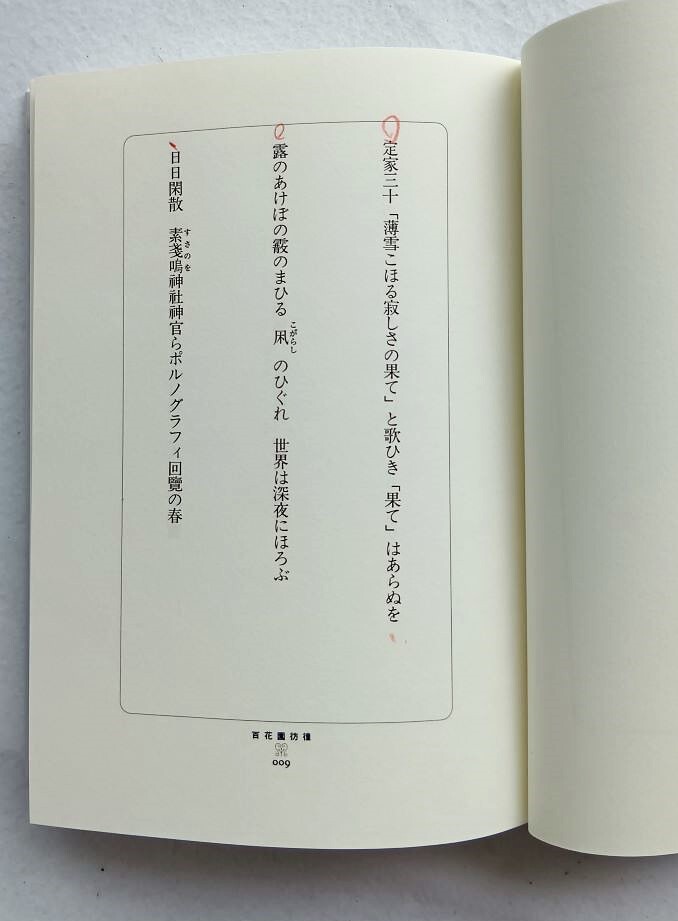 定家三十「薄雪こほる寂しさの果て」と歌ひき「果て」はあらぬを
露のあけぼの霰のまひる 凩 のひぐれ 世界は深夜にほろぶ
こがらし
日日閑散 素戔嗚神社神官らポルノグラフィ回覽の春
すさのを
百花園彷徨
009